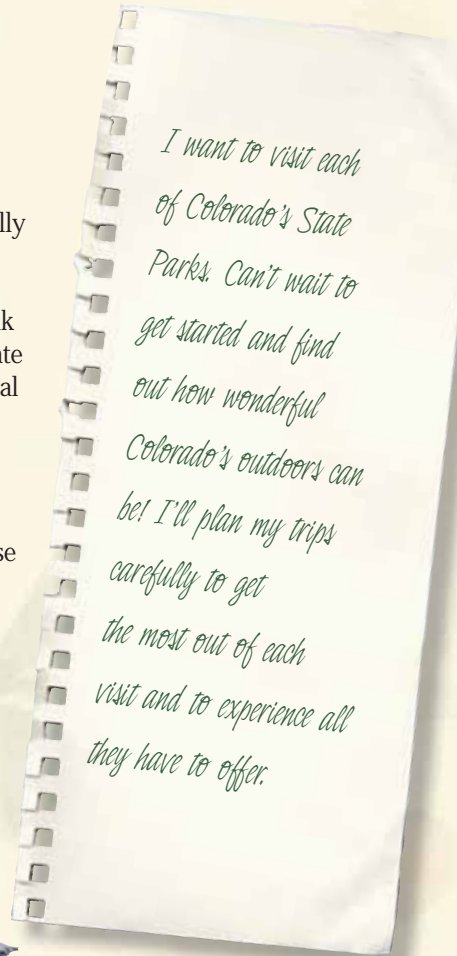 I want to visit each
of Colorado's State
Parks. Can't wait to
get started and find
out how wonderful
Colorado's outdoors can
be! I'll plan my trips
carefully to get
the most out of each
visit and to experience all
they have to offer.